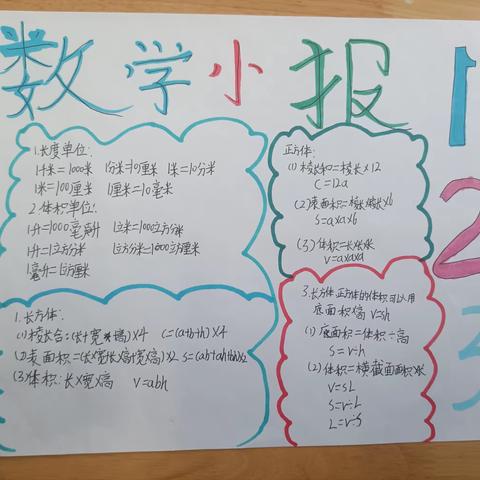 数学小报
1
2
3
1.长度单位:
1千米=1000米 1分米=10厘米 1米=10分米
1米=100厘米 1厘米=10毫米
2.体积单位:
1升=1000毫升 1立米=1000立方分米
1升=1立方分米 1立方分米=1000立方厘米
1毫升=1立方厘米
正方体:
(1)棱长和=棱长×12
C=12a
(2)表面积=棱长×棱长×6
S=a×a×6
(3)体积=长×宽×
V=a×a×a
1.长方体:
(1)棱长合:(长+宽+高)×4 C=(a+b+h)×4
(2)表面积=(长×宽+长×高+宽×高)×2 S=(ab+ah+bh)×2
(3)体积:长×宽×高 V=abh
3.长方体正方体的体积可以用
底面积×高 V=sh
(1)底面积=体积÷高
S=V÷h
(2)体积=横截面面积×长
V=SL
S=V÷L
L=V÷S